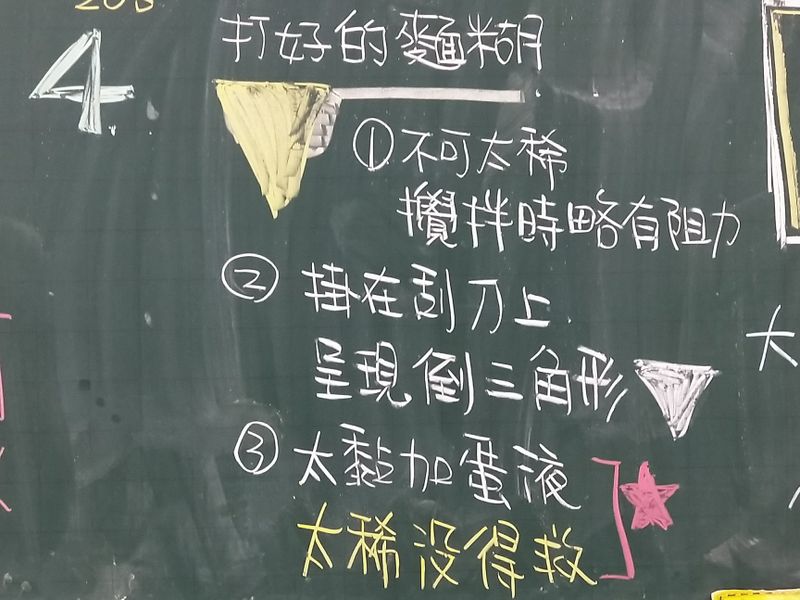 4
打好的麵糊
①不可太稀
攪拌時略有阻力
②掛在刮刀上
呈現倒三角形
③太黏加蛋液
太稀没得救
大